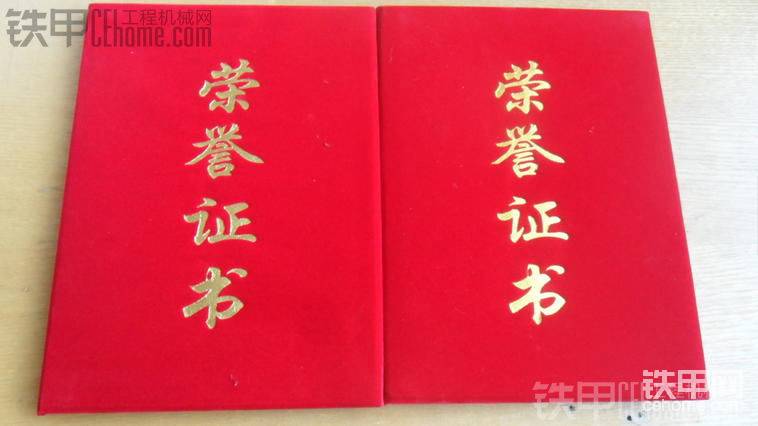 铁甲 工程机械网
CEhome.com
荣誉证书
荣誉证书
铁甲网
cehome.com